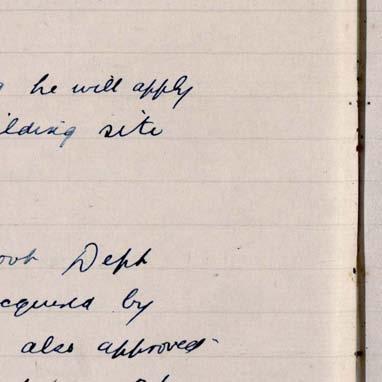 he will apply
ilding site
Deph
acquired by
also approved